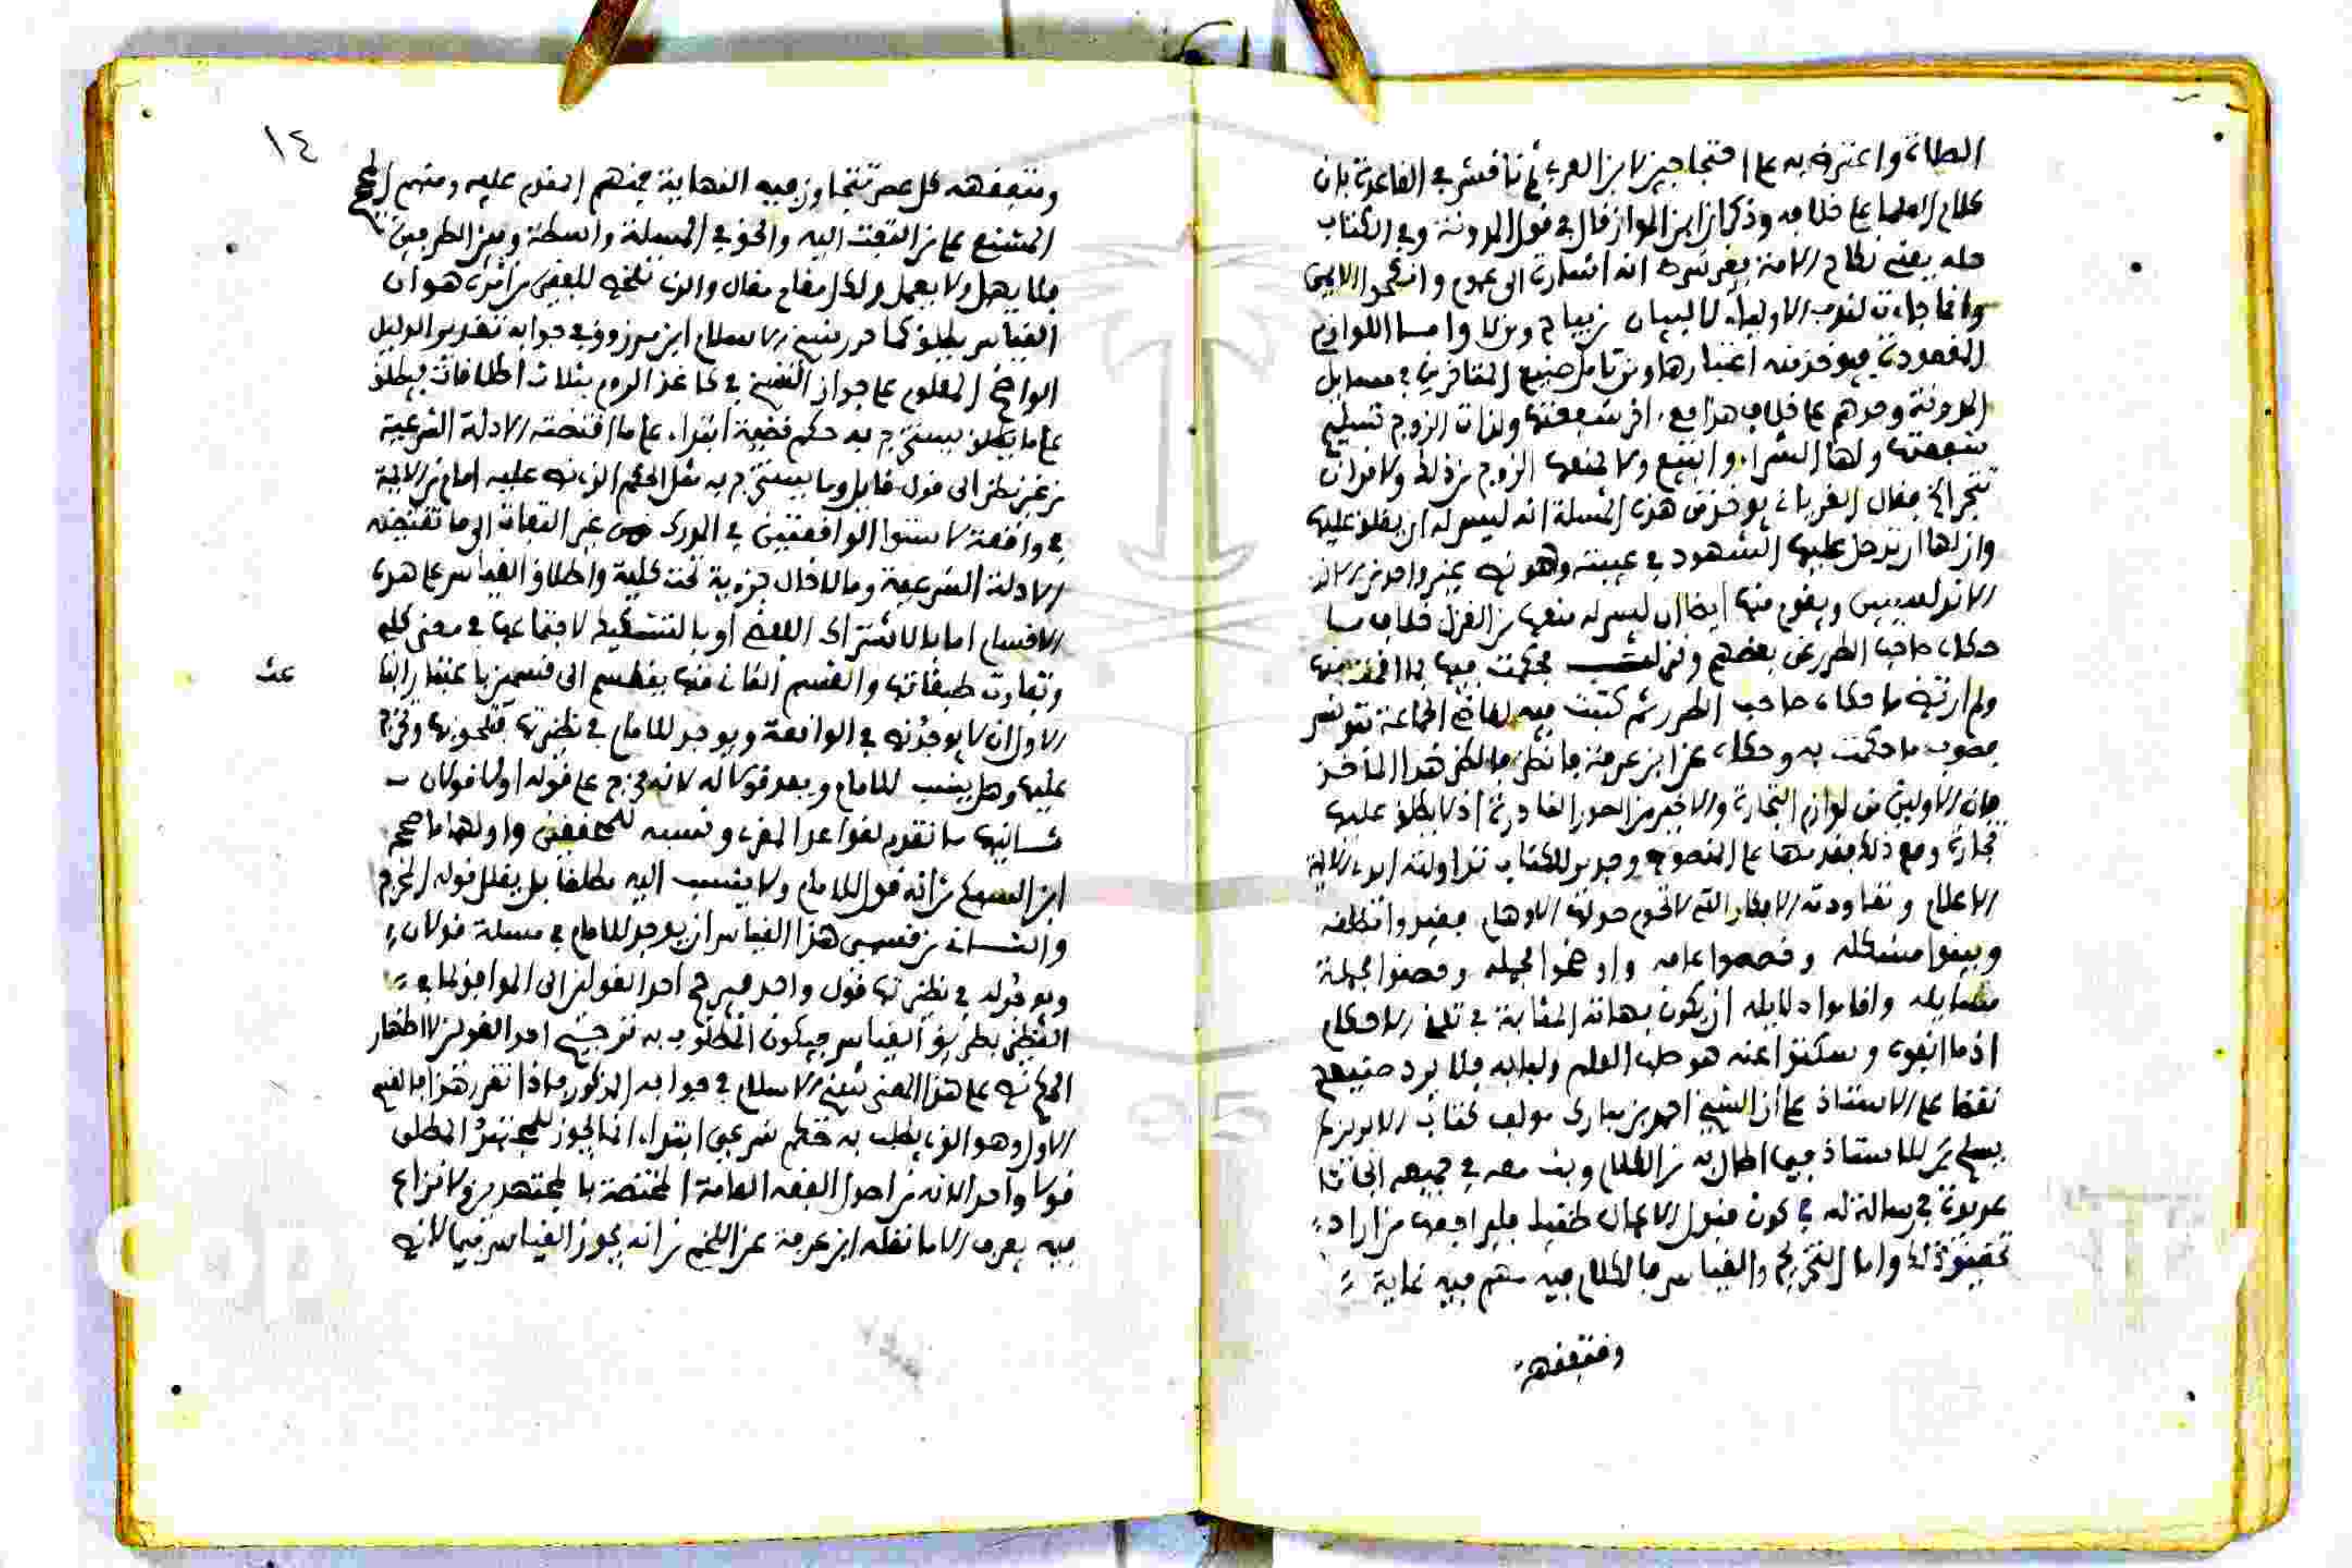 الصلاة واعترض به على احتجاجين لابن العربي ثم ناقش في القاعدة بان
كلام العلما على خلافه وذكر ان ابن المواز قال في قول المدونة وفي الكتاب
حله يعني نكاح الامة بغير شرط انه اشارة الى عموم وانكحوا الايمى
وانما جاءت لندب الاولياء لا لبيان من يباح ومن لا واما اللوازم
المقصودة فيوخذ منه اعتبارها ومن تامل صنيع المتاخرين في مسايل
المدونة وجدهم على خلاف هذا مع
شفعتها ولها الشراء والبيع ولا يمنعها الزوج من ذلك
تتجر الخ فقال الغرباني يوخذ من هذه المسلة انه ليس له ان يغلق عليها
وان لها ان تدخل عليها الشهود في غيبته وهو نص غير واحد من
الاندلسيين ويقوم منها ايضا ان ليس له منعها من الغزل خلاف ما
حكاه صاحب الطرر عن بعضهم ونزلت فحكمت فيها بما اخذ منها
ولم ارتض ما حكاه صاحب الطرر ثم كتبت فيه لقاضي الجماعة بتونس
فصوب ما حكمت به وحكاه عن ابن عرفة فانظر فلكن هذا الماخذ
فان الاولين من لوازم التجارة والاخير من الصور النادرة اذ لا يطلق عليها
تجارة ومع ذلك فقدمها على المنصوص وجدير للكتاب تداولته ايدي الايمة
الاعلام وتعاودته الافكار التي لا تحوم حولها الاوهام فقيدوا مطلقه
وبينوا مشكله وخصصوا عامه واوضحوا مجمله وفصلوا جملة
مسايله واقاموا دلايله ان يكون بهاته المثابة في تلقي الاحكام
اذ ما انفوه وسكتوا عنه هو صلب العلم ولبابه فلا يرد صنيعهم
نقضا على الاستاذ على ان الشيخ احمد بن مبارك مولف كتاب الابريز لم
يسلم للاستاذ فيما اطال به من الكلام وبث معه في جميعه ابحاثا
عديدة في رسالة له في كون قبول الاعمال فليراجعها من اراد
تحقيق ذلك واما التخريج والقياس فالكلام فيه مهم فيه غاية
ومتفقهه
١٤
ومتفقهه كل عصر تتجاوز فيه النهاية فمنهم المقدم عليه ومنهم
المشنع على من التفت اليه والحق في المسلة واسطة وبين الطرفين
فلا يهمل ولا يعمل ولكل مقام مقال والذي تلخص للفقير من اثره هو ان
القياس يطلق كما حرر شيخ الاسلام ابن مرزوق في جوابه تقرير الدليل
الواضح المعلوم على جواز النسخ في كاغد الروم بثلاث اطلاقات فيطلق
على ما يستخرج به حكم قضية ابتداء على ما اقتضته الادلة الشرعية
من غير نظر الى قول قايل وما يستخرج به مثل الحكم الذي نص عليه امام من الايمة
في واقعة لاستوا الواقعتين في المدرك من غير التفات الى ما تقتضيه
الادلة الشرعية وما لادخال جزوية تحت كلية واطلاق القياس على هذه
الاقسام اما بالاشتراك اللفظي او بالتشكيك لاجتماعها في معنى كلي
وتفاوت طبقاتها والقسم الثاني منها ينقسم الى قسمين باعتبار
الاول ان لا يوجد نص في الواقعة ويوجد للامام في نظيرتها فتلحق بها وتخرج
عليها وهل ينسب للامام ويعد قولا له لانه مخرج على قوله اولا قولان
ثانيهما ما تقدم لقواعد المقري ونسبه للمحققين واولهما ما صححه
ابن السبكي من انه قول للامام ولا ينسب اليه مطلقا بل يقال قوله المخرج
والثاني من قسمي هذا القياس ان يوجد للامام في مسلة قولان
ويوجد له في نظيرتها قول واحد فيرجح احد القولين الى الموافق لما في
النظير بطريق القياس فيكون المطلوب به ترجيح احد القولين لا اظهار
الحكم نص على هذا المعنى شيخ الاسلام في جوابه المذكور فاذا تقرر هذا فالقسم
الاول وهو الذي يطلب به حكم شرعي ابتداء انما يجوز للمجتهد المطلق
قولا واحدا لانه من اصول الفقه العامة المختصة بالمجتهدين ولا نزاع
فيه يعرف الا ما نقله ابن عرفة عن اللخمي من انه يجوز القياس فيما لا نص